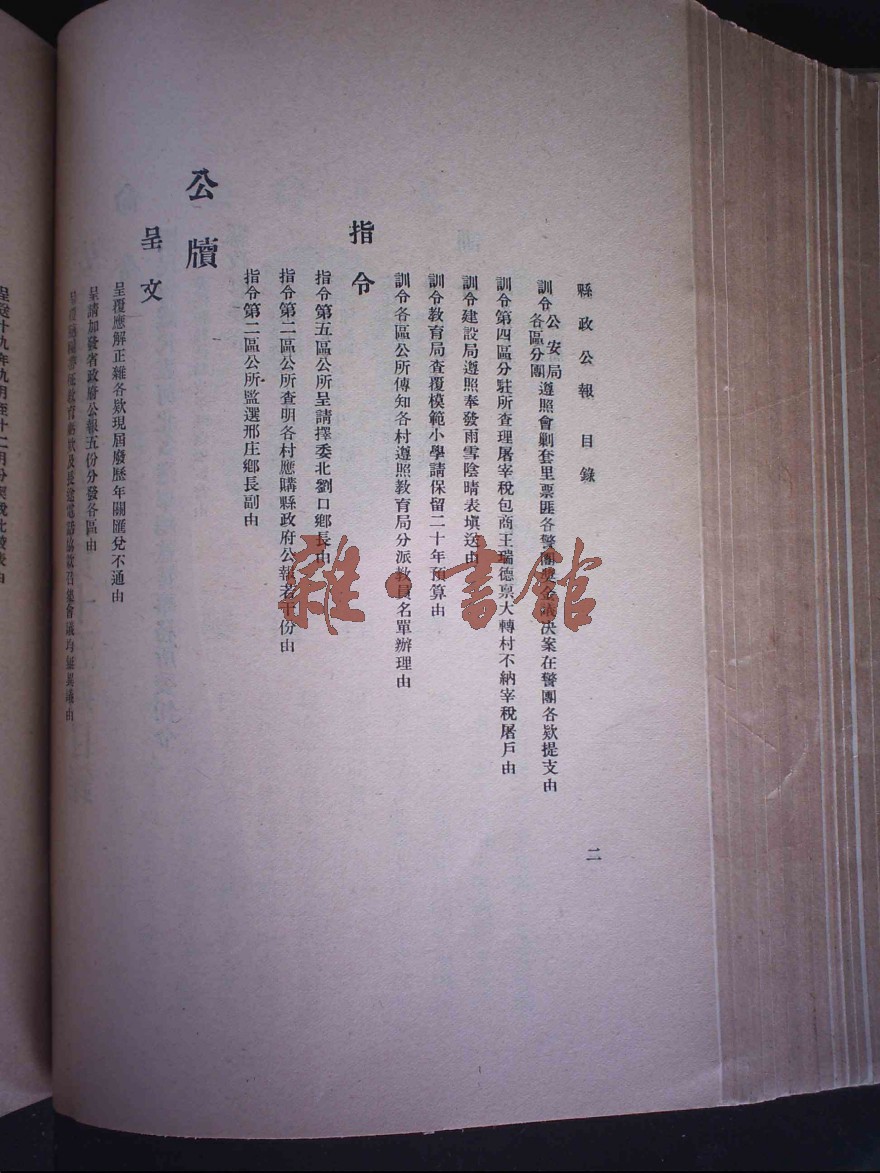 縣政公報 目錄
二
訓令公安局各區分團遵照會剿套里票匪各警團獎金議決案在警團各欵提支由
訓令第四區分駐所查理屠宰稅包商王瑞德禀大轉村不納宰稅屠戶由
訓令建設局遵照奉發雨雪陰晴表填送由
訓令教育局查覆模範小學請保留二十年預算由
訓令各區公所傳知各村遵照教育局分派教員名單辦理由
指令
指令第五區公所呈請擇委北劉口鄉長由
指令第二區公所查明各村應購縣政府公報若干份由
指令第二區公所監選邢庄鄉長副由
公牘
呈文
呈覆應解正雜各欵現屆廢歷年關匯兌不通由
呈請加發省政府公報五份分發各區由
教育
欵及長途電話協欵召集會議均無異議由
呈送十九年九月至十二月分契稅比較表由
雜·書館